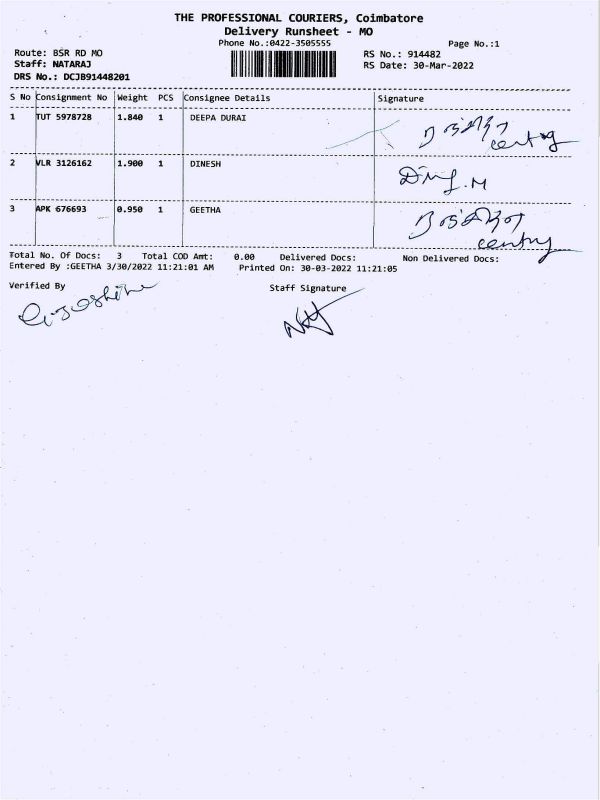 THE PROFESSIONAL COURIERS, Coimbatore
Delivery Runsheet - MO
Phone No.:0422-3505555
Page No.:1
Route: BSR RD MO
RS No.: 914482
Staff: NATARAJ
RS Date: 30-Mar-2022
DRS No.: DCJB91448201
S No Consignment No Weight PCS Consignee Details Signature
1 TUT 5978728 1.840 1 DEEPA DURAI
2 VLR 3126162 1.900 1 DINESH
3 APK 676693 0.950 1 GEETHA
Total No. Of Docs: 3 Total COD Amt: 0.00 Delivered Docs: Non Delivered Docs:
Entered By :GEETHA 3/30/2022 11:21:01 AM Printed On: 30-03-2022 11:21:05
Verified By Staff Signature